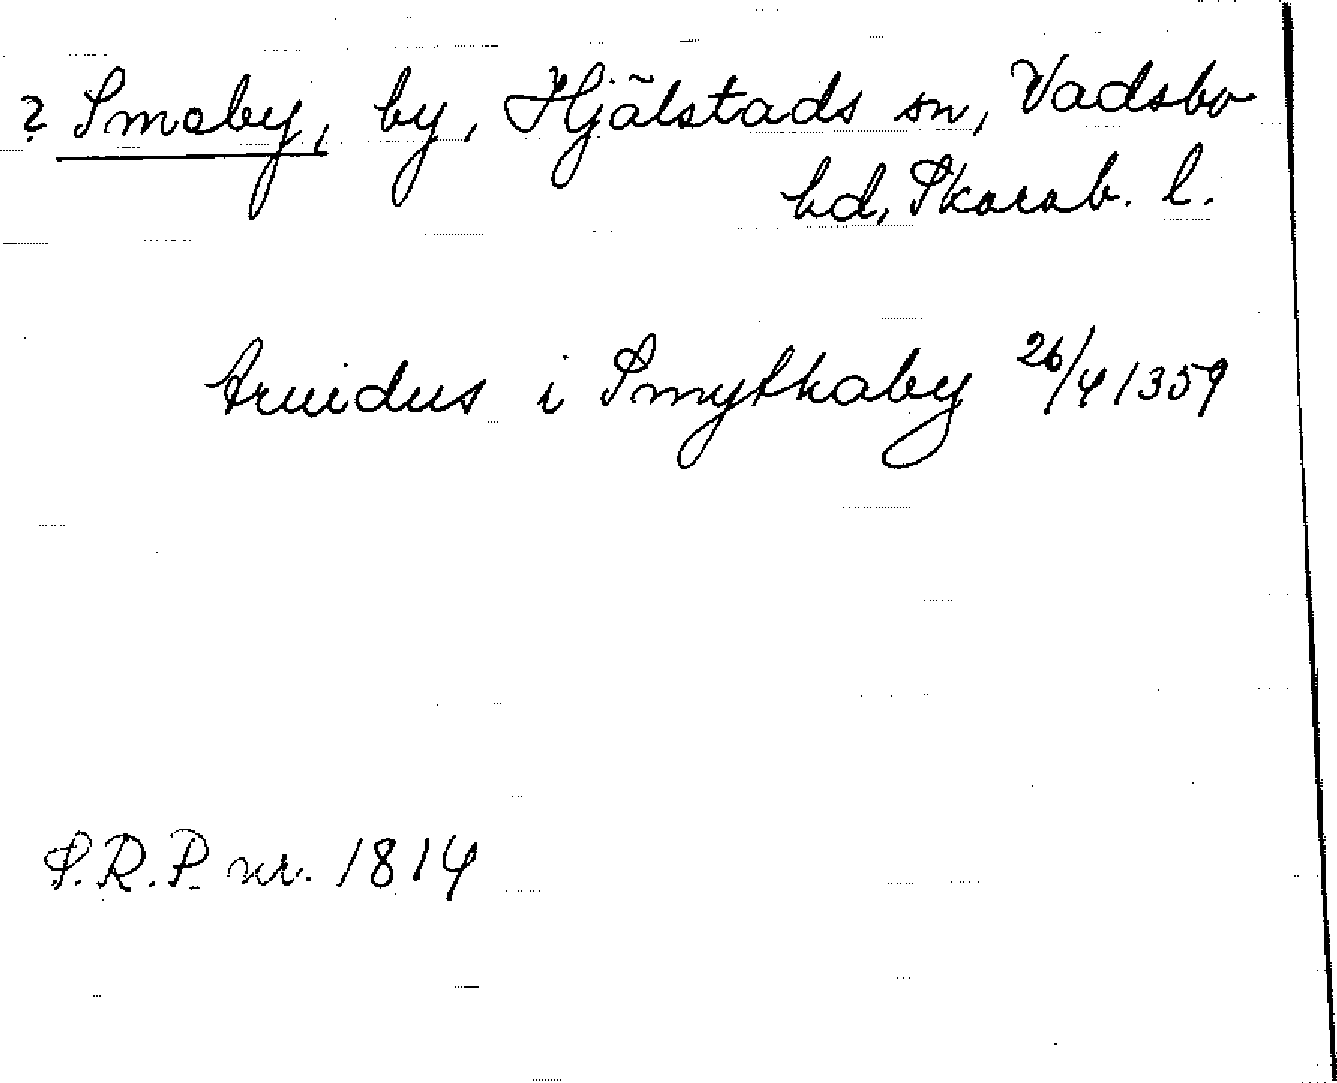 ? Smeby, by, Hjälstads sn, Vadsbo
hd, Skarab. l.
Aruidus i Smythaby 26/4 1359
S.R.P. nr. 1814